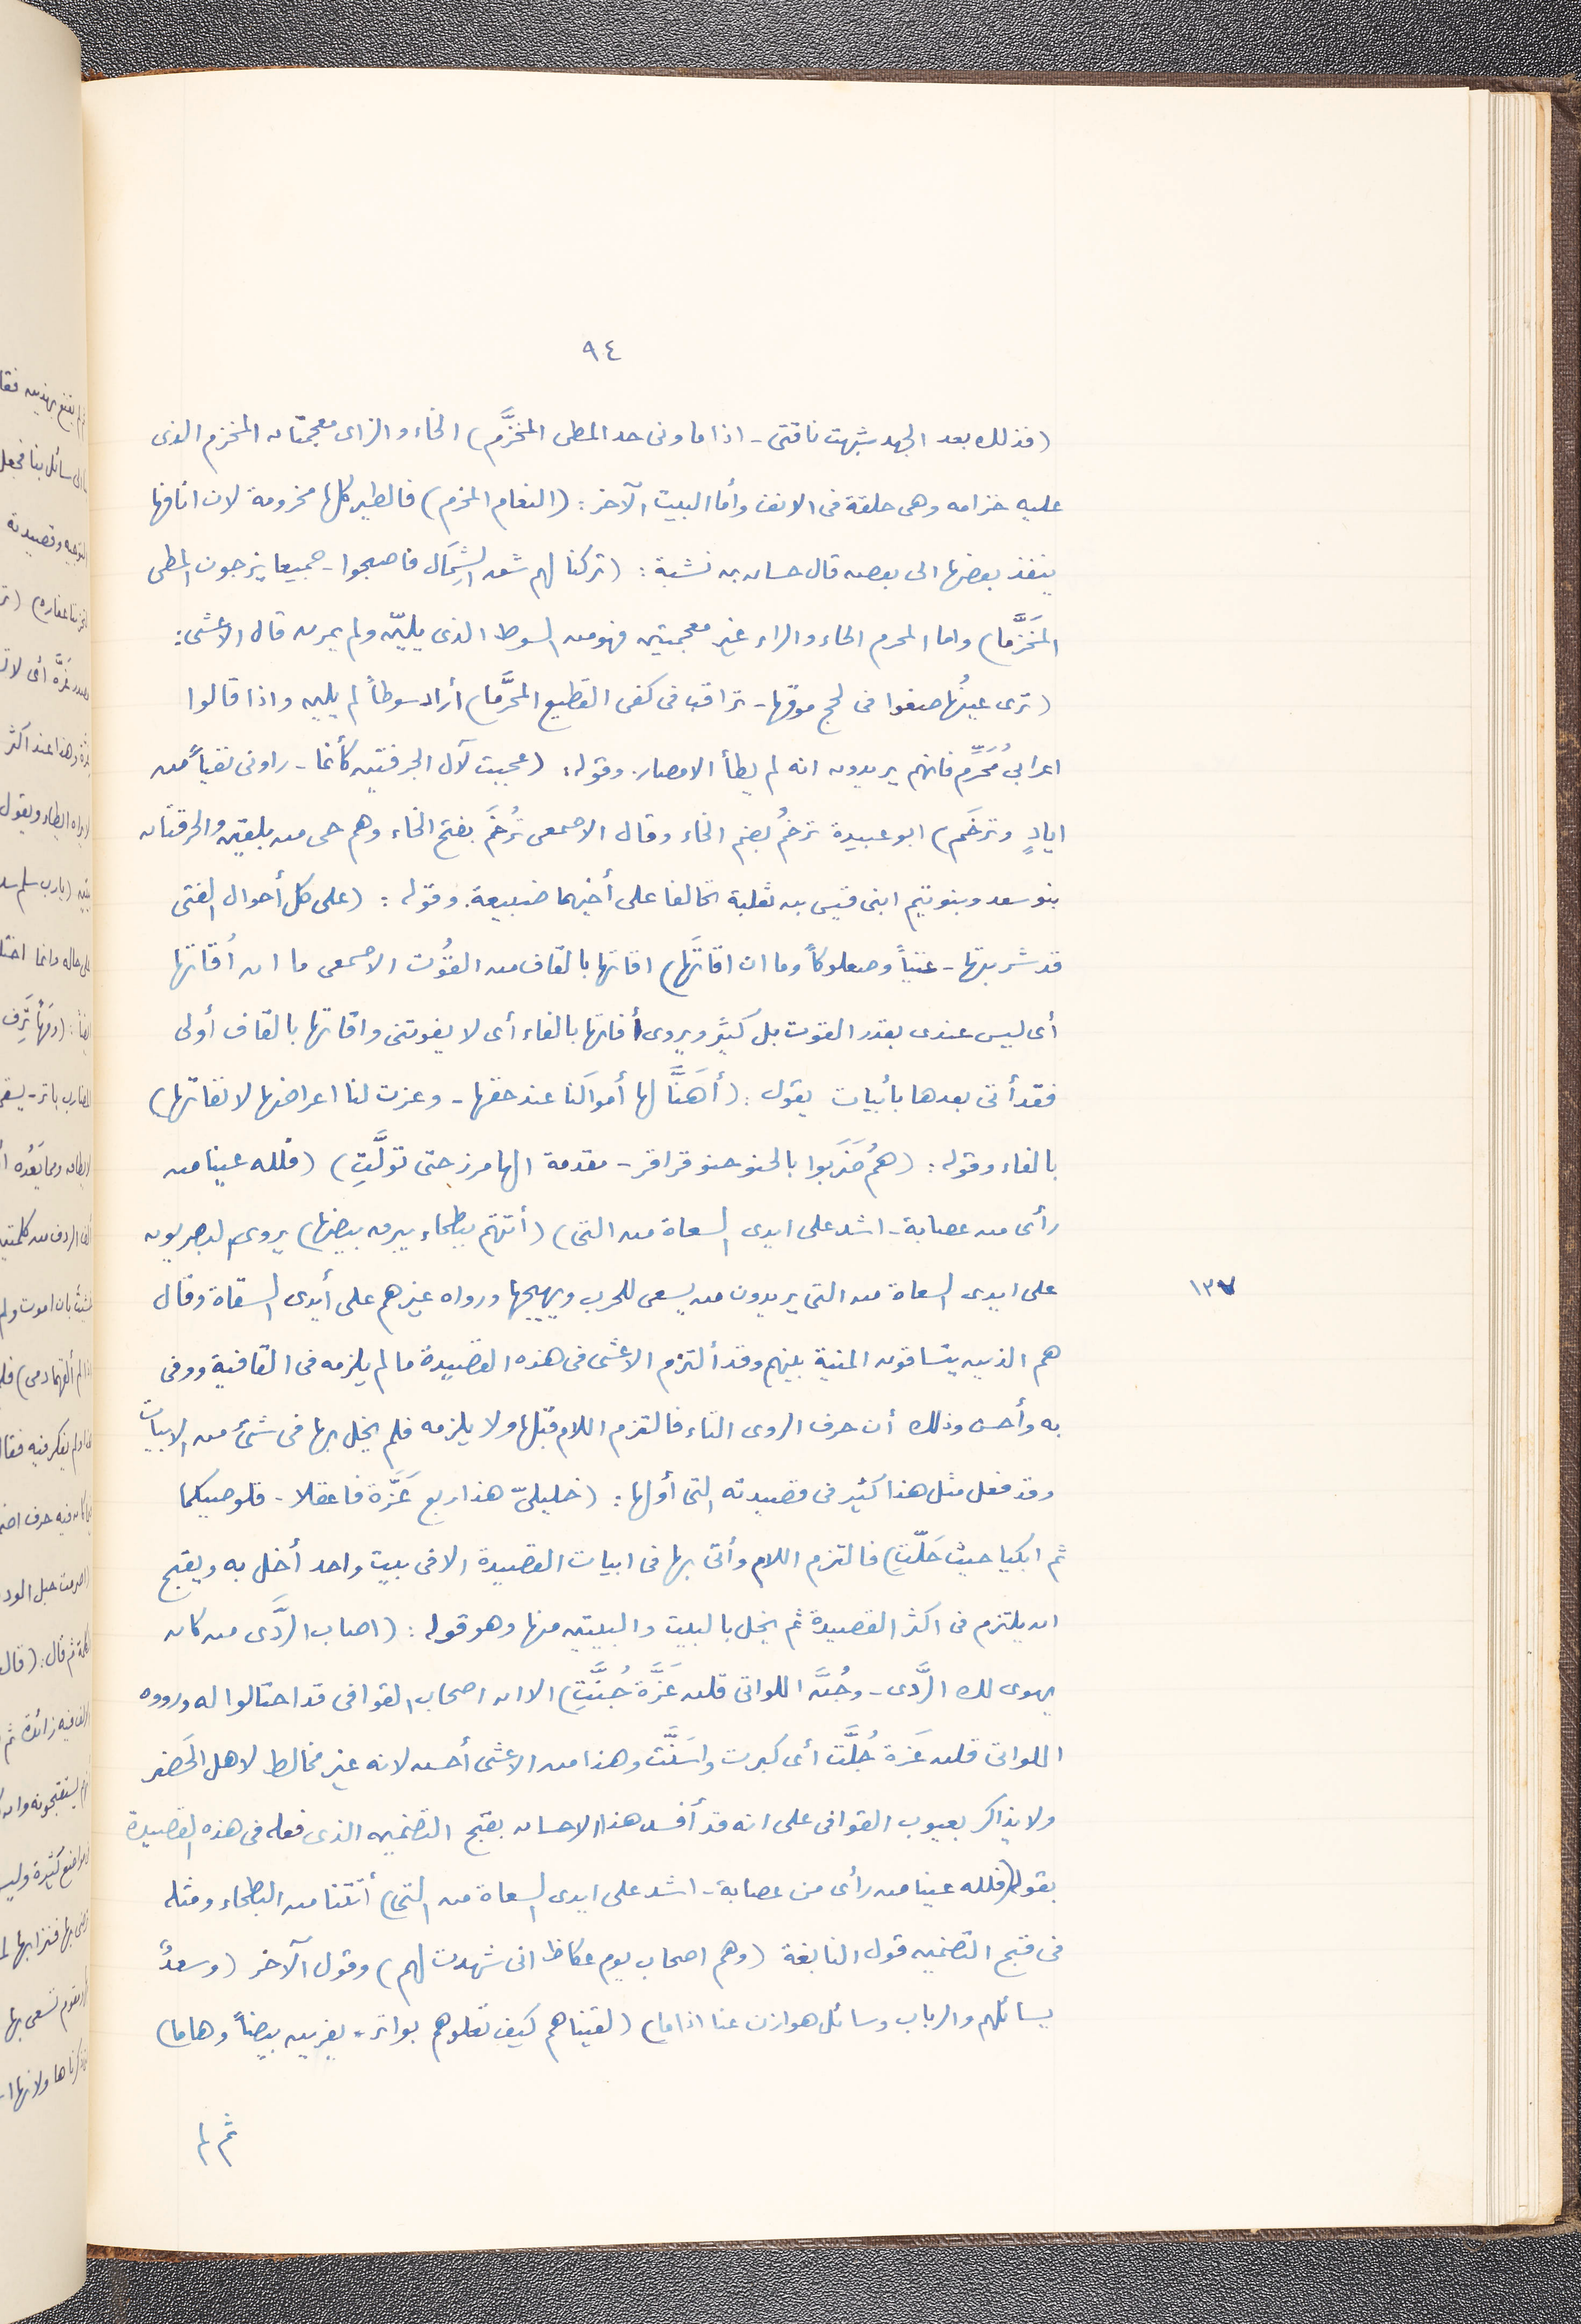 ٩٤
(فذلك بعد الجهد شبهت ناقتى - اذا ما ونى حد المطى المخزَّم) الخاء والزاى معجمتان المخزم الذى
عليه خزامه وهى حلقة فى الانف وأما البيت الآخر: (النعام المخزم) فالطير كلها مخزومة لان انافها
ينفذ بعضها الى بعض قال حسان بن نشبة: (تركنا لهم شق الشِمَال فاصبحوا - جميعا يزجون المطى
المَخَزَّما) واما المحرم الحاء والراء غير معجمتين فهو من السوط الذى يليّن ولم يمرن قال الاعشى:
(ترى عينُها صغوا فى لحج موقها - تراقب فى كفى القطيع المحرَّما) أراد سوطاً لم يلين واذا قالوا
اعرابي مُحَرّم فانهم يريدون انه لم يطأ الامصار. وقوله: (عجبت لآل الحرقتين كأنما - راونى نفياً من
ايادٍ وترخَم) ابو عبيدة ترخمُ بضم الخاء وقال الاصمعى تُرخَم بفتح الخاء وهم حى من بلقين والحرقتان
بنو سعد وبنو تيم ابنى قيس بن ثعلبة تخالفا على أخيهما ضبيعة. وقوله: (على كل أحوال الفتى
قد شربتها - غنياً وصعلوكاً وما ان اقاتَها) اقاتها بالقاف من القُوت الاصمعى ما ان أُقاتها
أى ليس عندى بقدر القوت بل كثير ويروى أفاتها بالفاء أى لا يفوتنى واقاتها بالقاف أولى
فقد أتى بعدها بأبيات يقول: (أهَنَّا لها أموالَنا عند حقها - وعزت لنا اعراضها لا نفاتها)
بالفاء وقوله: (همُ ضَرَبوا بالحنو حنو قراقر - مقدمة الهامرز حتى تولَّتِ) (فلله عينا من
رأى من عصابة - اشد على ايدى السعاة من التى) (أتتهم ببطحاء يبرق بيضها) يروى البصريون
على ايدى السعاة من التى يريدون من يسعى للحرب ويهيجها ورواه غيرهم على أيدى السقاة وقال
١٣٧
هم الذين يتساقون المنية بينهم وقد ألتزم الاعشى فى هذه القصيدة ما لم يلزمه فى القافية ووفى
به وأحسن وذلك أن حرف الروى التاء فالتزم اللام قبلها ولا يلزمه فلم يخل بها فى شئ من الابيات
وقد فعل مثل هذا كثير فى قصيدته التى أولها: (خليلىّ هذا ربع عَزَّة فاعقلا - قلوصيكما
ثم ابكيا حيث حَلّتِ) فالتزم اللام وأتى بها فى ابيات القصيدة الا فى بيت واحد أخل به ويقبح
ان يلتزم فى اكثر القصيدة ثم يخل بالبيت والبيتين منها وهو قوله: (اصاب الرَّدَى من كان
يهوى لك الرَّدى - وجُنَّ اللواتى قلن عَزَّة جُنَّتِ) الا ان اصحاب القوافى قد احتالوا له ورووه
اللواتى قلن عَزة جُلَّت أى كبرت واسَنَّت وهذا من الاعشى أحسن لانه غير مخالط لاهل الحَضر
ولا يذاكر بعيوب القوافى على انه قد أفسد هذا الاحسان بقبح التضمين الذى فعله فى هذه القصيدة
بقوله (فلله عينا من رأى من عصابة - اشد على ايدى السعاة من التى) أتتنا من البطحاء ومثله
فى قبح التضمين قول النابغة (وهم اصحاب يوم عكاظ انى شهدت لهم) وقول الآخر (وسعدٌ
يسائلهم والرباب وسائل هوازن عنا اذا ما) (لقيناهم كيف نعلوهم بواتر - يفرين بيضاً وهاما)
ثم لم